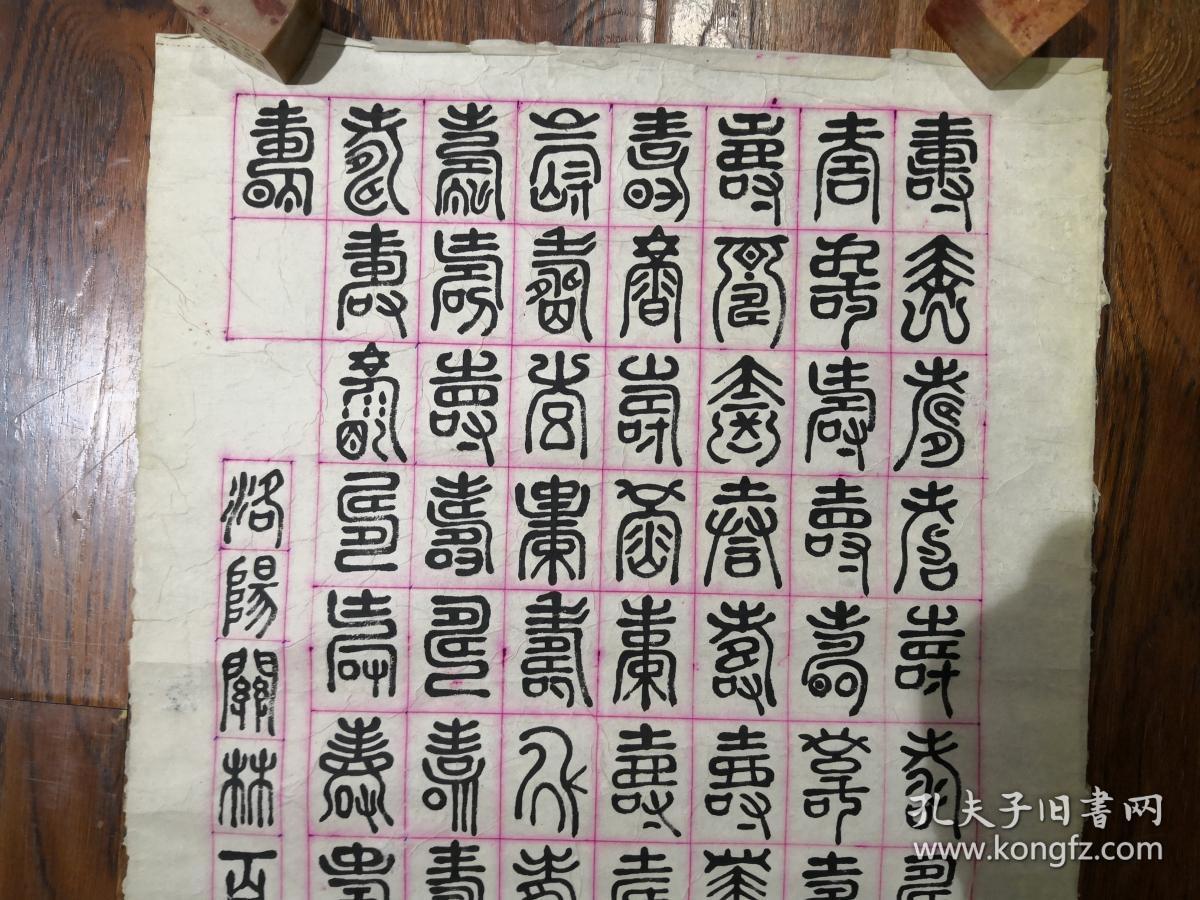 壽壽壽壽壽壽壽
壽壽壽壽壽壽壽
壽壽壽壽壽壽壽
壽壽壽壽壽壽壽
壽壽壽壽壽壽壽
壽壽壽壽壽壽壽
壽壽壽壽壽壽壽
壽
洛陽關林百
孔夫子旧書网
www.kongfz.com